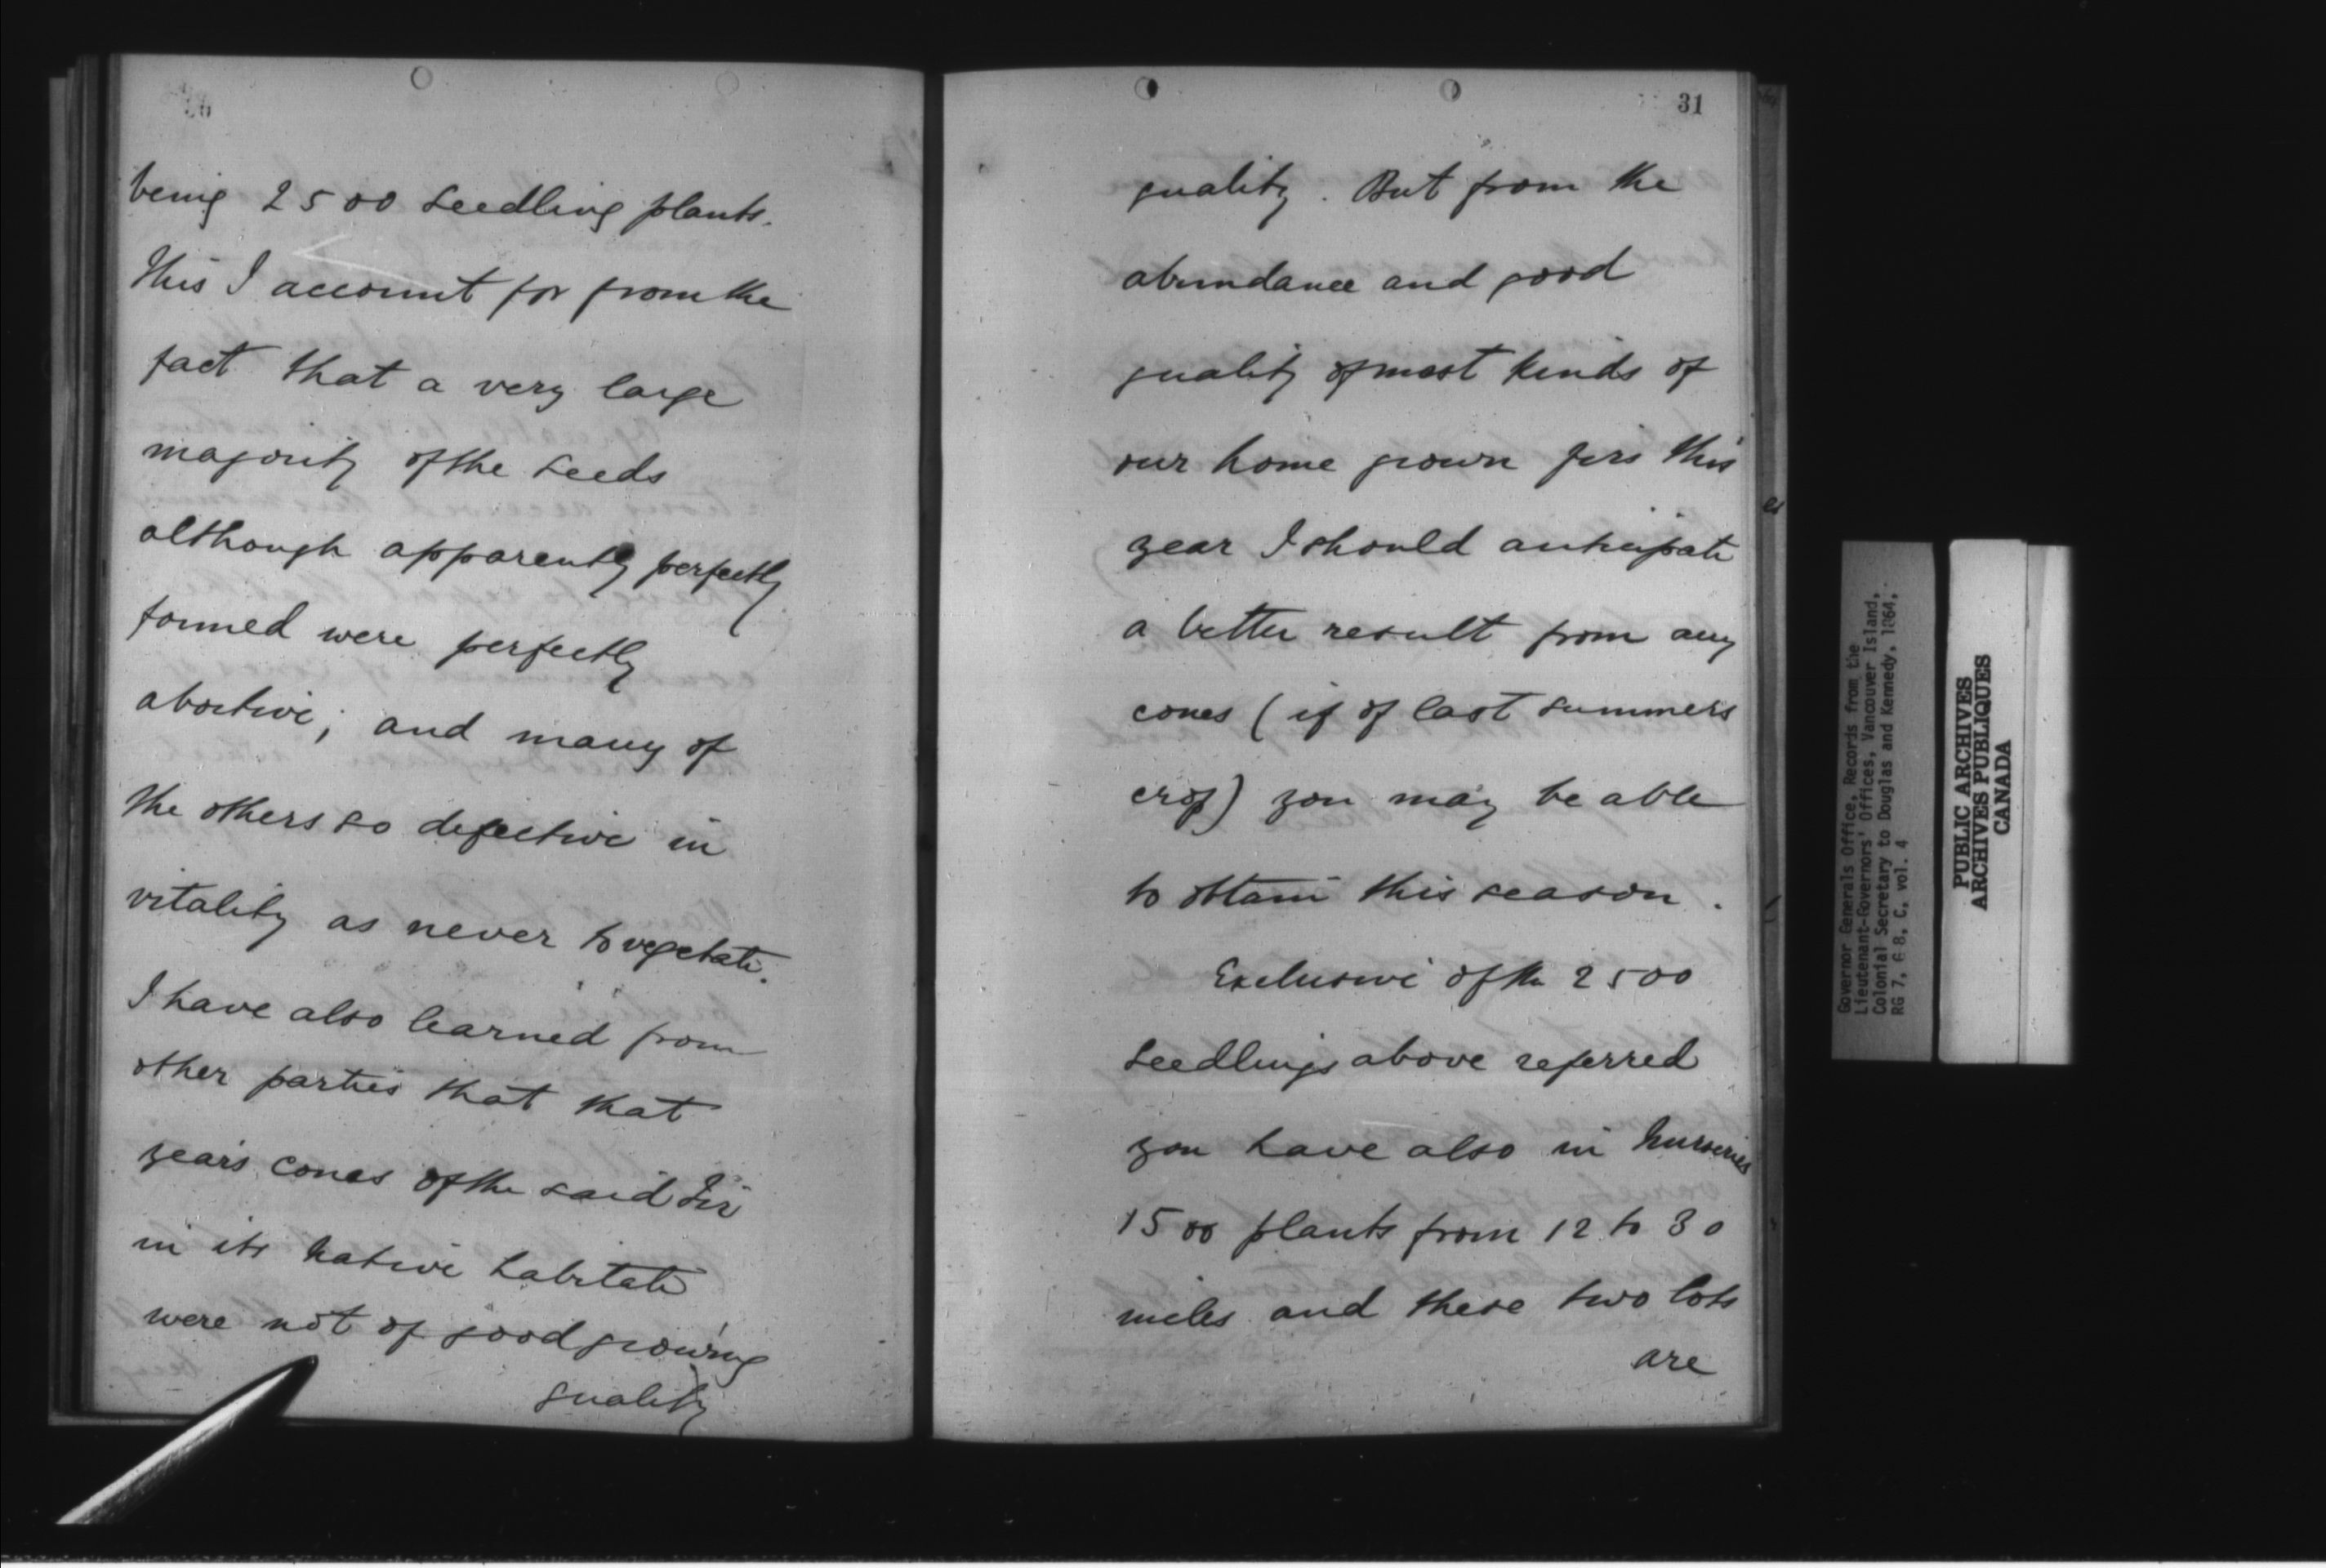 being 2500 seedling plants.
This I account for from the
fact that a very large
majority of the seeds
although apparently perfectly
formed were perfectly
abortive; and many of
the others so defective in
vitality as never to vegetate.
I have also learned from
other parties that that
years cones of the said Fir
in its native habitate
were not of good growing
quality
31
quality. But from the
abundance and good
quality of most kinds of
our home grown firs this
year I should anticipate
a better result from any
cones (if of last summers
crop) you may be able
to obtain this season.
Exclusive of the 2500
seedlings above referred
you have also in nurseries
1500 plants from 12 to 30
miles and these two lots
are
Governor Generals Office, Records from the
Lieutenant-Governors' Offices, Vancouver Island,
Colonial Secretary to Douglas and Kennedy, 1864,
RG 7, G 8, C, vol. 4
PUBLIC ARCHIVES
ARCHIVES PUBLIQUES
CANADA